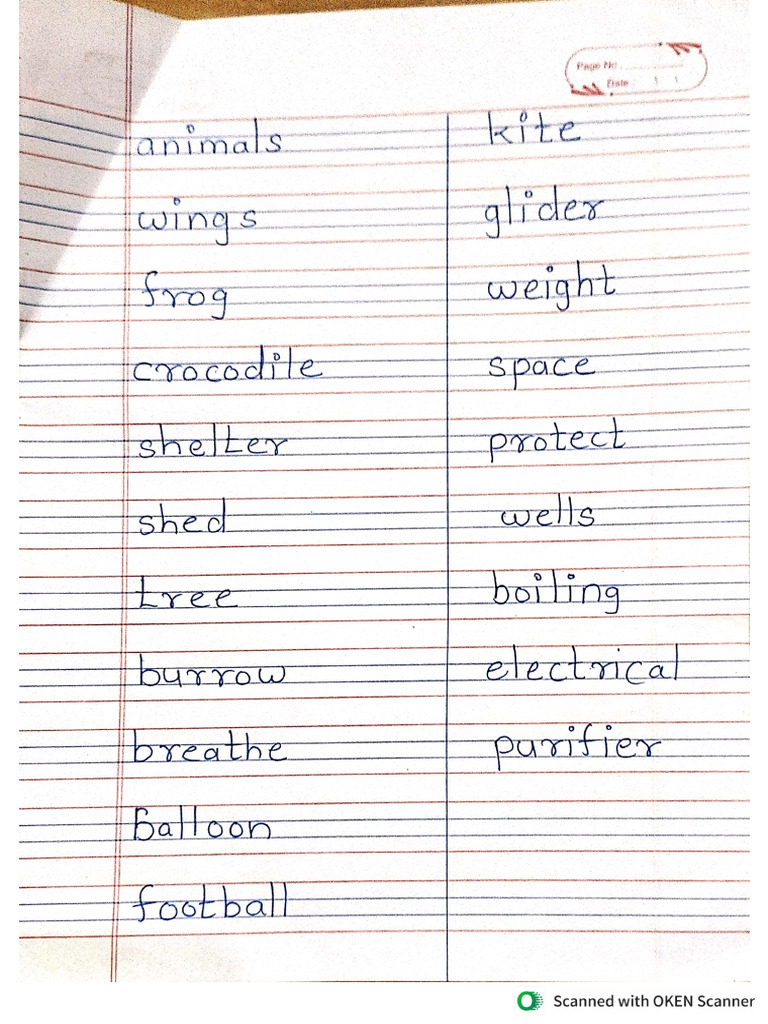 Page No
Date
animals
wings
frog
crocodile
shelter
shed
tree
burrow
breathe
balloon
football
kite
glider
weight
space
protect
wells
boiling
electrical
purifier
Scanned with OKEN Scanner